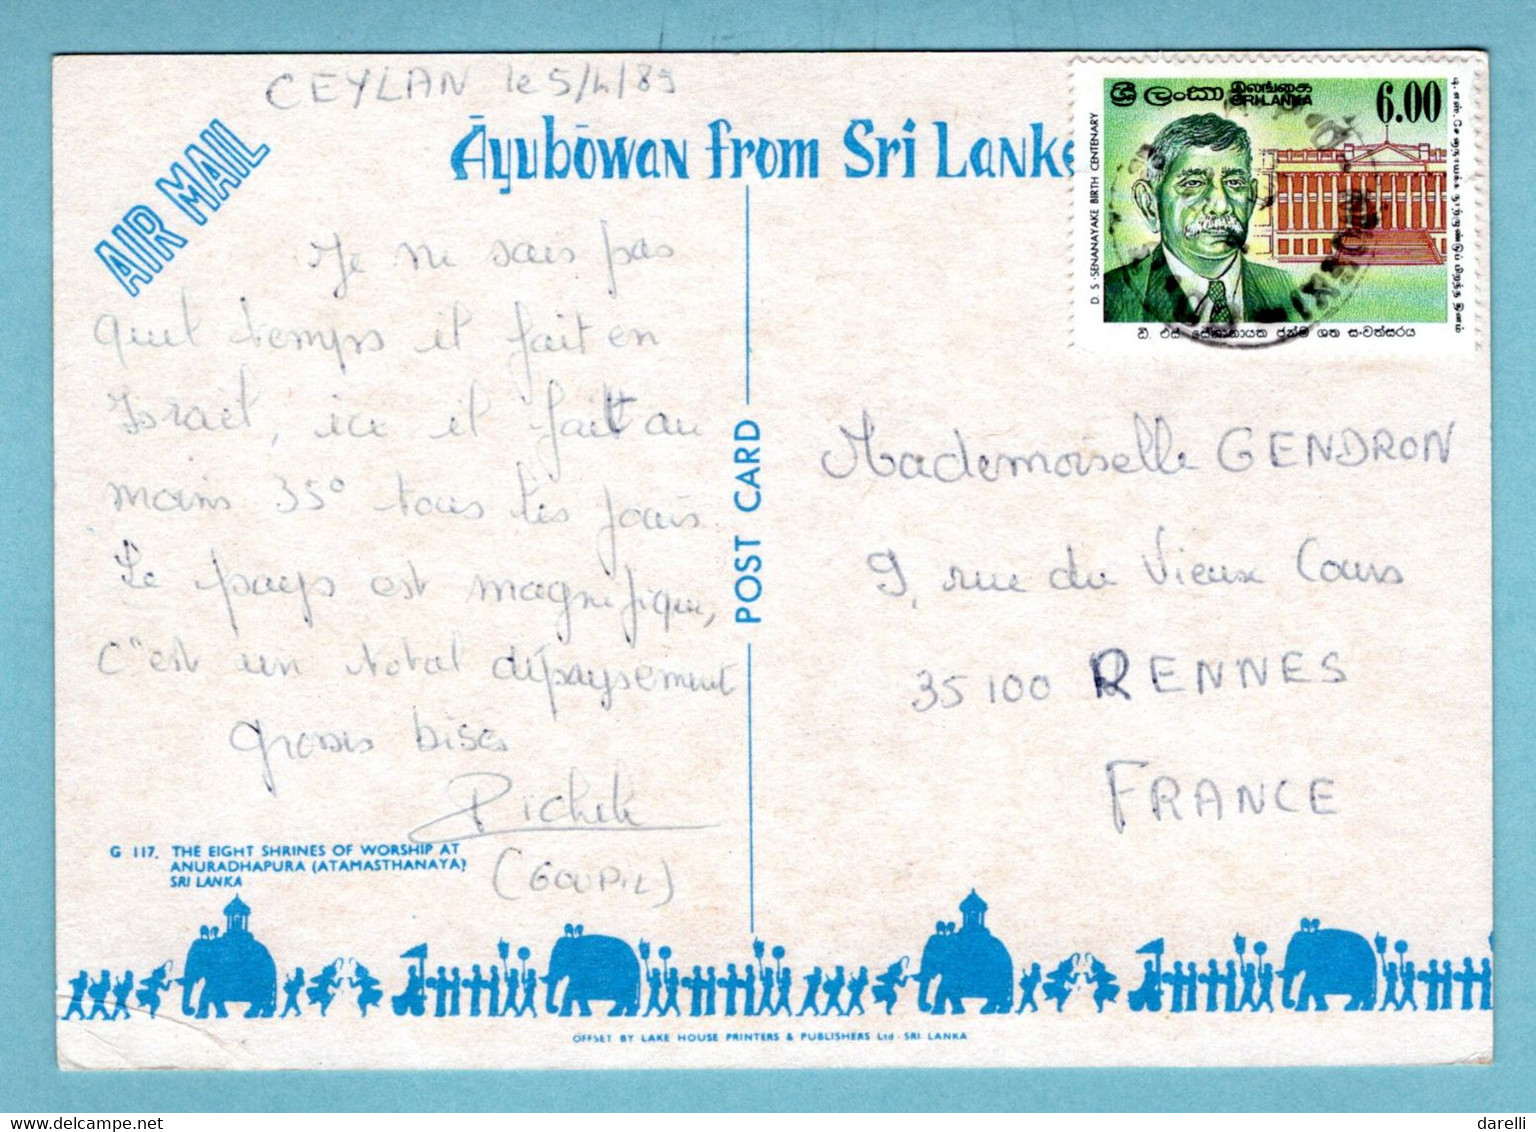 CEYLAN le 5/4/89
AIR MAIL
Āyubōwan from Sri Lanka
Je ne sais pas
quel temps il fait en
Israël, ici il fait au
moins 35° tous les jours.
Le pays est magnifique,
C'est un total dépaysement
grosses bises
(GOUPIL)
G 117. THE EIGHT SHRINES OF WORSHIP AT
ANURADHAPURA (ATAMASTHANAYA)
SRI LANKA
POST CARD
ශ්‍රී ලංකා இலங்கை
SRI LANKA
6.00
D. S. SENANAYAKE BIRTH CENTENARY
ඩී. එස්. සේනානායක ජන්ම ශත සංවත්සරය
Mademoiselle GENDRON
9, rue du Vieux Cours
35100 RENNES
FRANCE
OFFSET BY LAKE HOUSE PRINTERS & PUBLISHERS Ltd. SRI LANKA
darelli